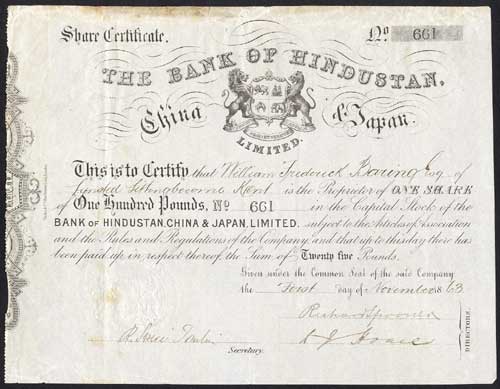 Share Certificate.
No 661
THE BANK OF HINDUSTAN,
China & Japan.
LIMITED.
This is to Certify that William Frederick Baring Esq of
Kent is the Proprietor of ONE SHARE
of One Hundred Pounds, No 661 in the Capital Stock of the
BANK OF HINDUSTAN, CHINA & JAPAN, LIMITED. subject to the Articles of Association
and the Rules and Regulations of the Company, and that up to this day there has
been paid up in respect thereof the Sum of Twenty five Pounds.
Given under the Common Seal of the said Company
the First day of November 1863
Richard Spooner
DIRECTORS.
Secretary.